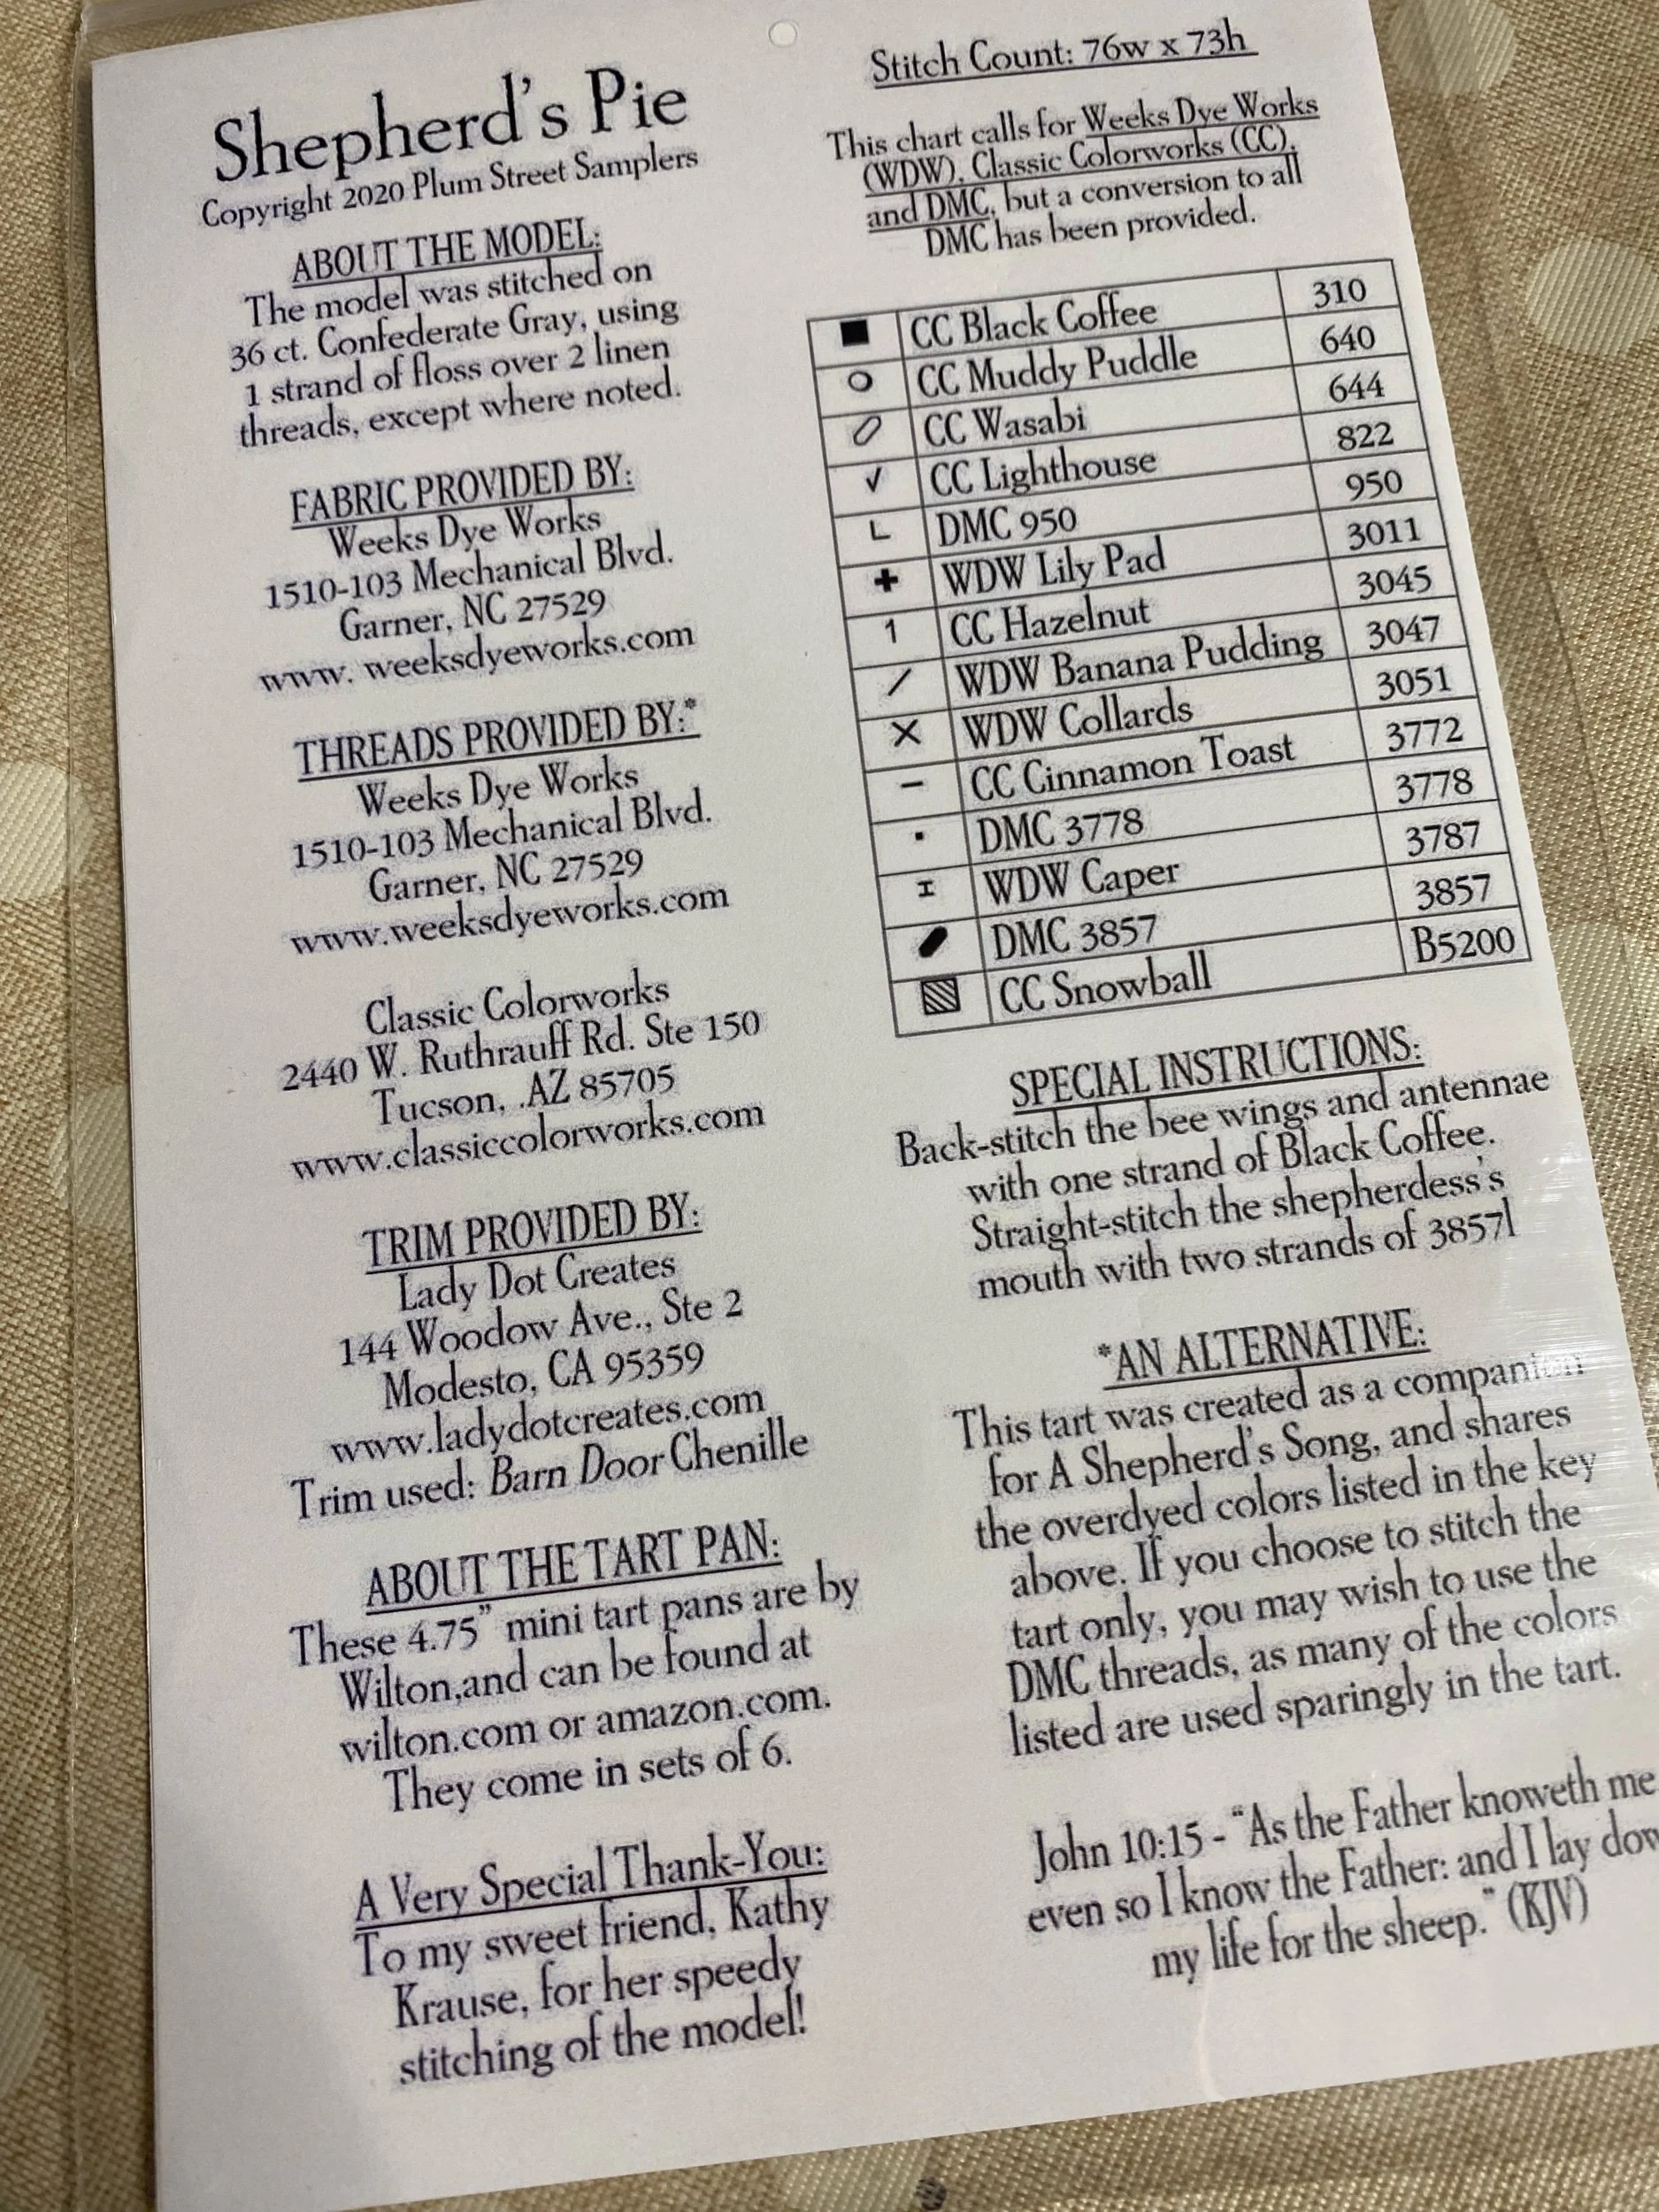 Shepherd's Pie
Copyright 2020 Plum Street Samplers
ABOUT THE MODEL:
The model was stitched on
36 ct. Confederate Gray, using
1 strand of floss over 2 linen
threads, except where noted.
FABRIC PROVIDED BY:
Weeks Dye Works
1510-103 Mechanical Blvd.
Garner, NC 27529
www. weeksdyeworks.com
THREADS PROVIDED BY:*
Weeks Dye Works
1510-103 Mechanical Blvd.
Garner, NC 27529
www.weeksdyeworks.com
Classic Colorworks
2440 W. Ruthrauff Rd. Ste 150
Tucson, .AZ 85705
www.classiccolorworks.com
TRIM PROVIDED BY:
Lady Dot Creates
144 Woodow Ave., Ste 2
Modesto, CA 95359
www.ladydotcreates.com
Trim used: Barn Door Chenille
ABOUT THE TART PAN:
These 4.75" mini tart pans are by
Wilton,and can be found at
wilton.com or amazon.com.
They come in sets of 6.
A Very Special Thank-You:
To my sweet friend, Kathy
Krause, for her speedy
stitching of the model!
Stitch Count: 76w x 73h
This chart calls for Weeks Dye Works
(WDW), Classic Colorworks (CC),
and DMC, but a conversion to all
DMC has been provided.
CC Black Coffee 310
CC Muddy Puddle 640
CC Wasabi 644
✓ CC Lighthouse 822
L DMC 950 950
+ WDW Lily Pad 3011
1 CC Hazelnut 3045
/ WDW Banana Pudding 3047
X WDW Collards 3051
- CC Cinnamon Toast 3772
DMC 3778 3778
I WDW Caper 3787
DMC 3857 3857
CC Snowball B5200
SPECIAL INSTRUCTIONS:
Back-stitch the bee wings and antennae
with one strand of Black Coffee.
Straight-stitch the shepherdess's
mouth with two strands of 3857l
*AN ALTERNATIVE:
This tart was created as a companion
for A Shepherd's Song, and shares
the overdyed colors listed in the key
above. If you choose to stitch the
tart only, you may wish to use the
DMC threads, as many of the colors
listed are used sparingly in the tart.
John 10:15 - "As the Father knoweth me
even so I know the Father: and I lay dow
my life for the sheep." (KJV)